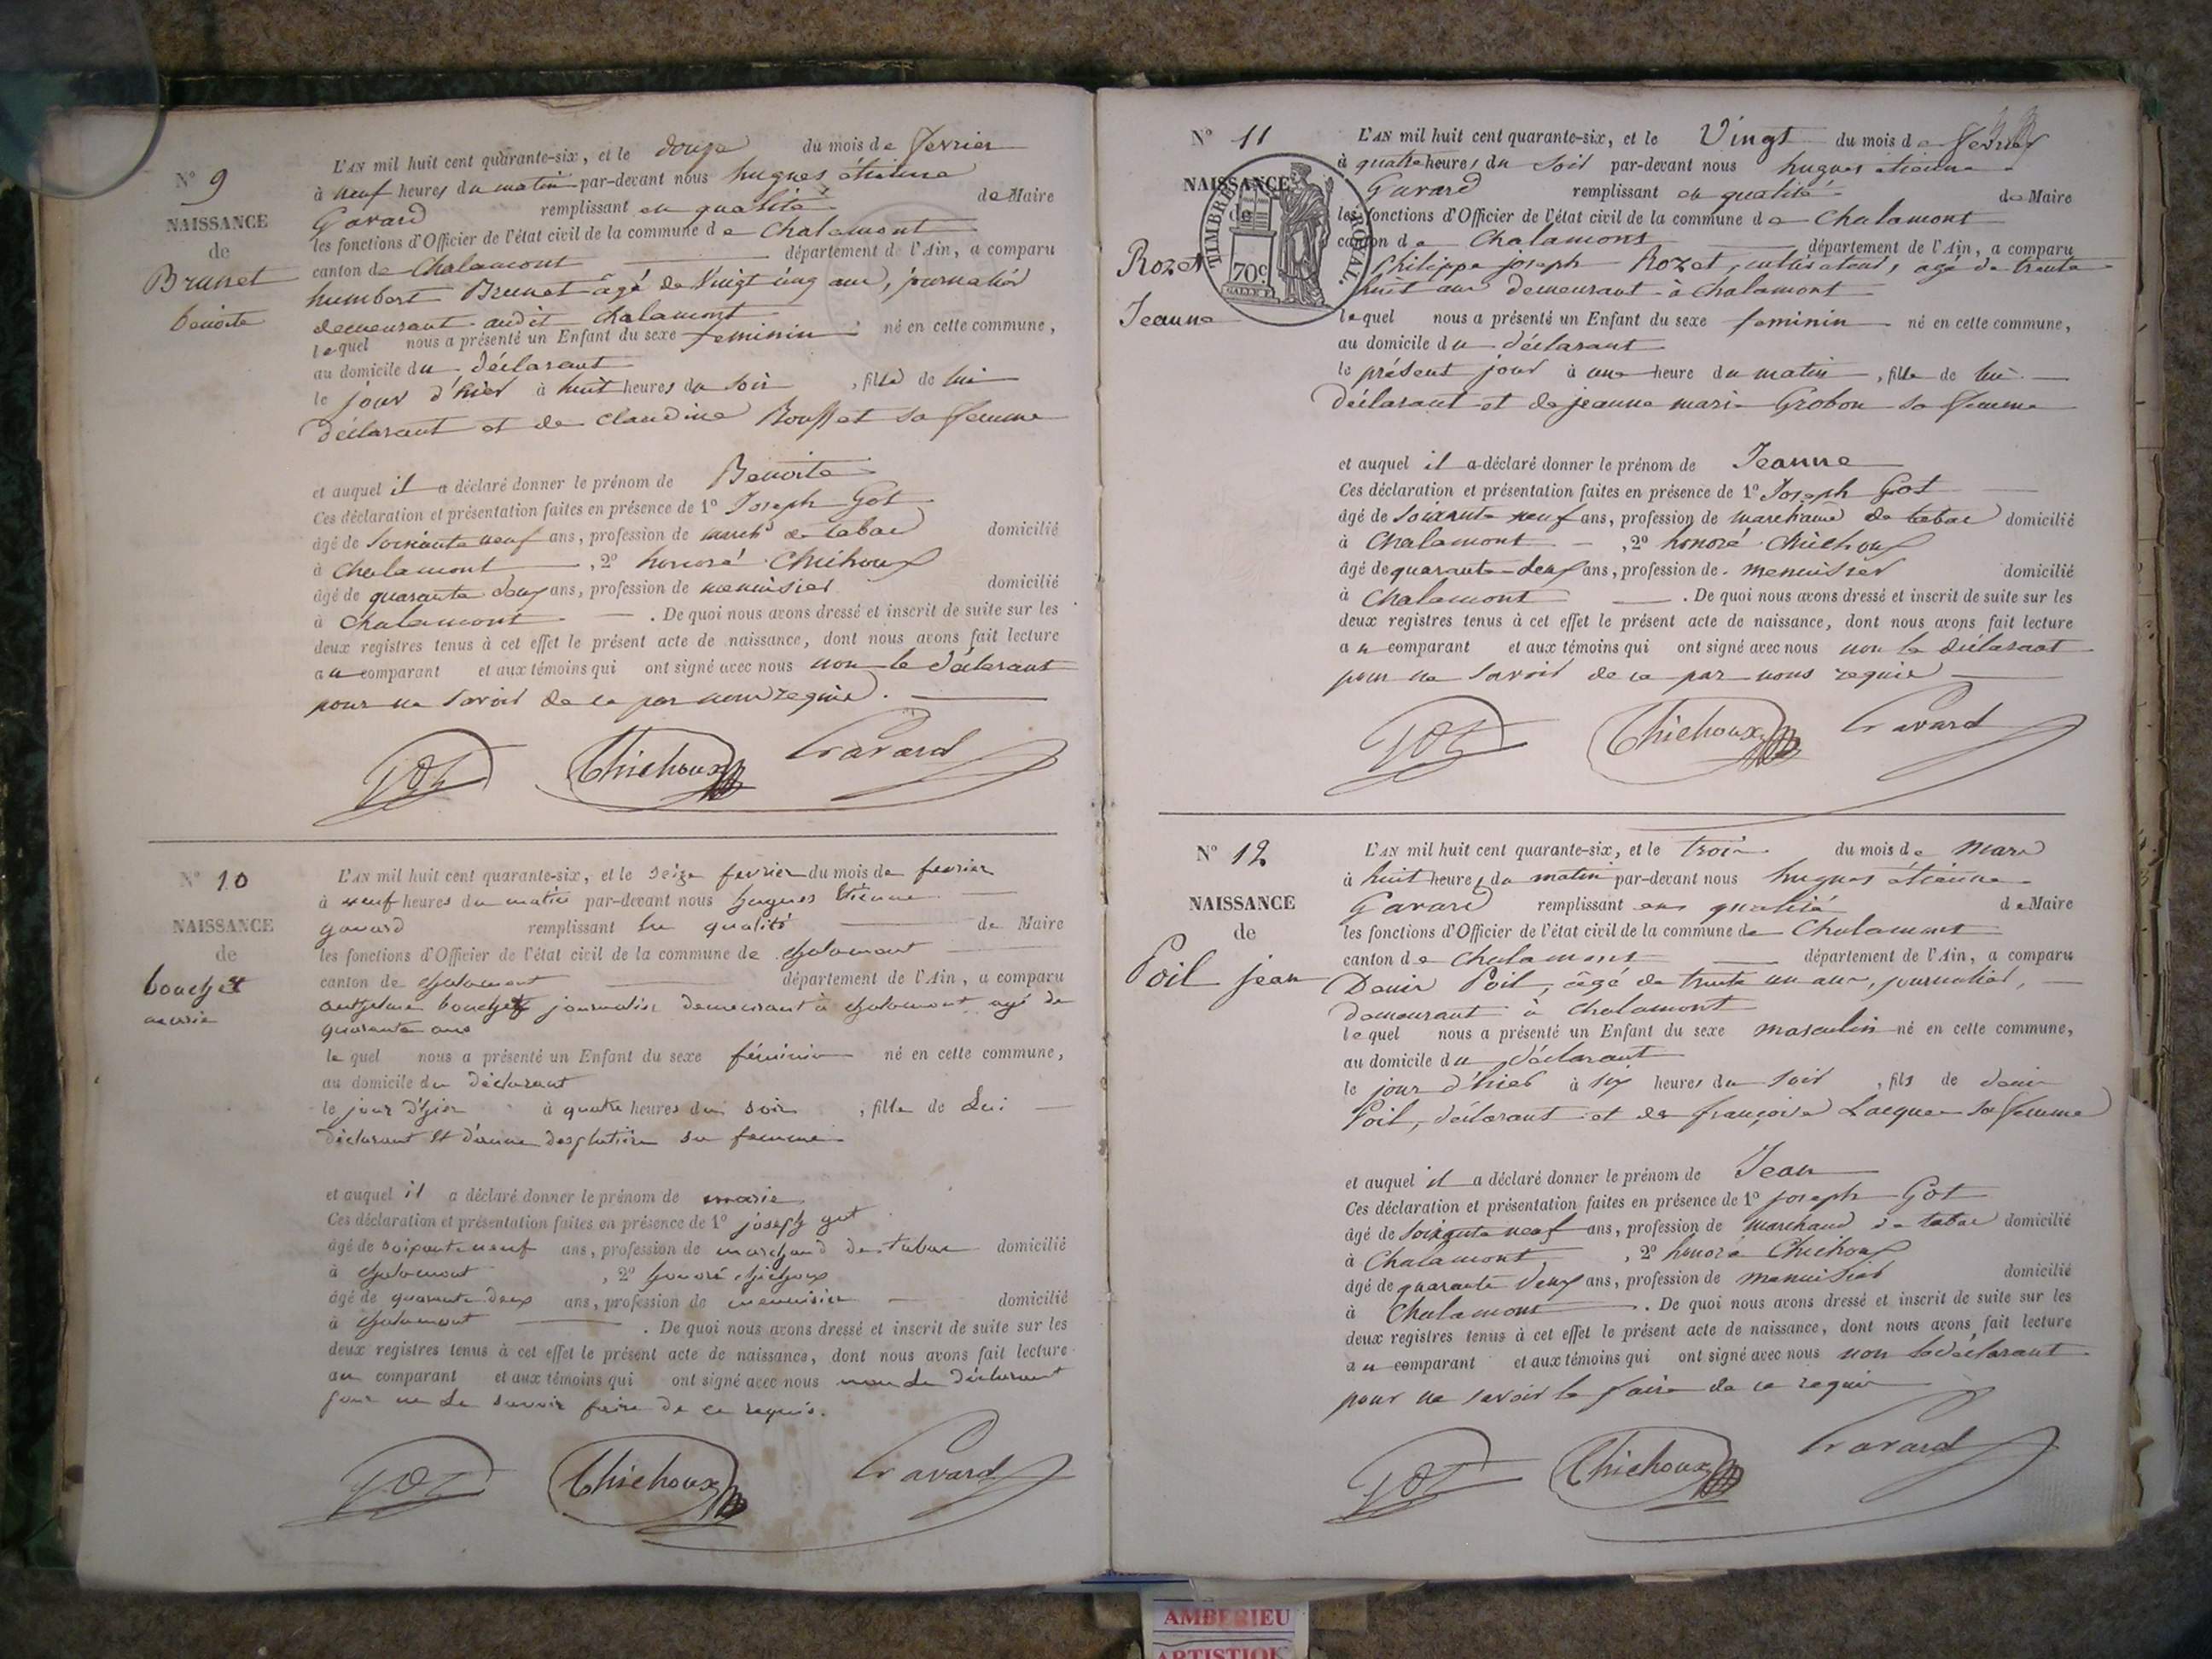 N° 9
NAISSANCE
de
Brunet
benoite
L'AN mil huit cent quarante-six, et le douze du mois de fevrier
à neuf heures du matin par-devant nous hugues étienne
Gavard remplissant en qualité de Maire
les fonctions d'Officier de l'état civil de la commune de Chalamont
canton de Chalamont département de l'Ain, a comparu
humbert Brunet âgé de vingt cinq ans, journalier
demeurant audit Chalamont
lequel nous a présenté un Enfant du sexe feminin né en cette commune,
au domicile du déclarant
le jour d'hier à huit heures du soir, fille de lui
déclarant et de claudine Rousset sa femme
et auquel il a déclaré donner le prénom de Benoite
Ces déclaration et présentation faites en présence de 1° Joseph Got
âgé de soixante neuf ans, profession de march^d de tabac domicilié
à Chalamont, 2° honoré Chichoux
âgé de quarante deux ans, profession de menuisier domicilié
à Chalamont. De quoi nous avons dressé et inscrit de suite sur les
deux registres tenus à cet effet le présent acte de naissance, dont nous avons fait lecture
au comparant et aux témoins qui ont signé avec nous non le déclarant
pour ne savoir de ce par nous requis.
Got Chichoux Gavard
N° 10
NAISSANCE
de
bouchet
marie
L'AN mil huit cent quarante-six, et le seize fevrier du mois de fevrier
à neuf heures du matin par-devant nous hugues étienne
gavard remplissant en qualité de Maire
les fonctions d'Officier de l'état civil de la commune de chalamont
canton de chalamont département de l'Ain, a comparu
anthelme bouchet journalier demeurant à chalamont agé de
quarante ans
lequel nous a présenté un Enfant du sexe féminin né en cette commune,
au domicile du déclarant
le jour d'hier à quatre heures du soir, fille de Lui
déclarant et d'anne sa femme
et auquel il a déclaré donner le prénom de marie
Ces déclaration et présentation faites en présence de 1° joseph got
âgé de soixante neuf ans, profession de marchand de tabac domicilié
à chalamont, 2° honoré chichoux
âgé de quarante deux ans, profession de menuisier domicilié
à chalamont. De quoi nous avons dressé et inscrit de suite sur les
deux registres tenus à cet effet le présent acte de naissance, dont nous avons fait lecture
au comparant et aux témoins qui ont signé avec nous non le déclarant
pour ne le savoir faire de ce requis.
Got Chichoux Gavard
N° 11
NAISSANCE
de
Rozet
Jeanne
TIMBRE ROYAL.
70c
L'AN mil huit cent quarante-six, et le Vingt du mois de fevrier
à quatre heures du soir par-devant nous hugues étienne
Gavard remplissant en qualité de Maire
les fonctions d'Officier de l'état civil de la commune de Chalamont
canton de Chalamont département de l'Ain, a comparu
Philippe joseph Rozet, cultivateur, agé de trente
huit ans demeurant à chalamont
lequel nous a présenté un Enfant du sexe feminin né en cette commune,
au domicile du déclarant
le présent jour à une heure du matin, fille de lui
déclarant et de jeanne marie Grobon sa femme
et auquel il a déclaré donner le prénom de Jeanne
Ces déclaration et présentation faites en présence de 1° Joseph Got
âgé de soixante neuf ans, profession de marchand de tabac domicilié
à Chalamont, 2° honoré Chichoux
âgé de quarante deux ans, profession de menuisier domicilié
à Chalamont. De quoi nous avons dressé et inscrit de suite sur les
deux registres tenus à cet effet le présent acte de naissance, dont nous avons fait lecture
au comparant et aux témoins qui ont signé avec nous non le déclarant
pour ne savoir de ce par nous requis
Got Chichoux Gavard
N° 12
NAISSANCE
de
Poil jean
L'AN mil huit cent quarante-six, et le trois du mois de mars
à huit heures du matin par-devant nous hugues étienne
Gavard remplissant en qualité de Maire
les fonctions d'Officier de l'état civil de la commune de Chalamont
canton de Chalamont département de l'Ain, a comparu
Denis Poil, âgé de trente un ans, journalier,
demeurant à Chalamont
lequel nous a présenté un Enfant du sexe masculin né en cette commune,
au domicile du déclarant
le jour d'hier à six heures du soir, fils de denis
Poil, déclarant et de françoise Lacques sa femme
et auquel il a déclaré donner le prénom de Jean
Ces déclaration et présentation faites en présence de 1° joseph Got
âgé de soixante neuf ans, profession de marchand de tabac domicilié
à Chalamont, 2° honoré Chichoux
âgé de quarante deux ans, profession de menuisier domicilié
à Chalamont. De quoi nous avons dressé et inscrit de suite sur les
deux registres tenus à cet effet le présent acte de naissance, dont nous avons fait lecture
au comparant et aux témoins qui ont signé avec nous non le déclarant
pour ne savoir le faire de ce requis
Got Chichoux Gavard
AMBERIEU
ARTISTIQ